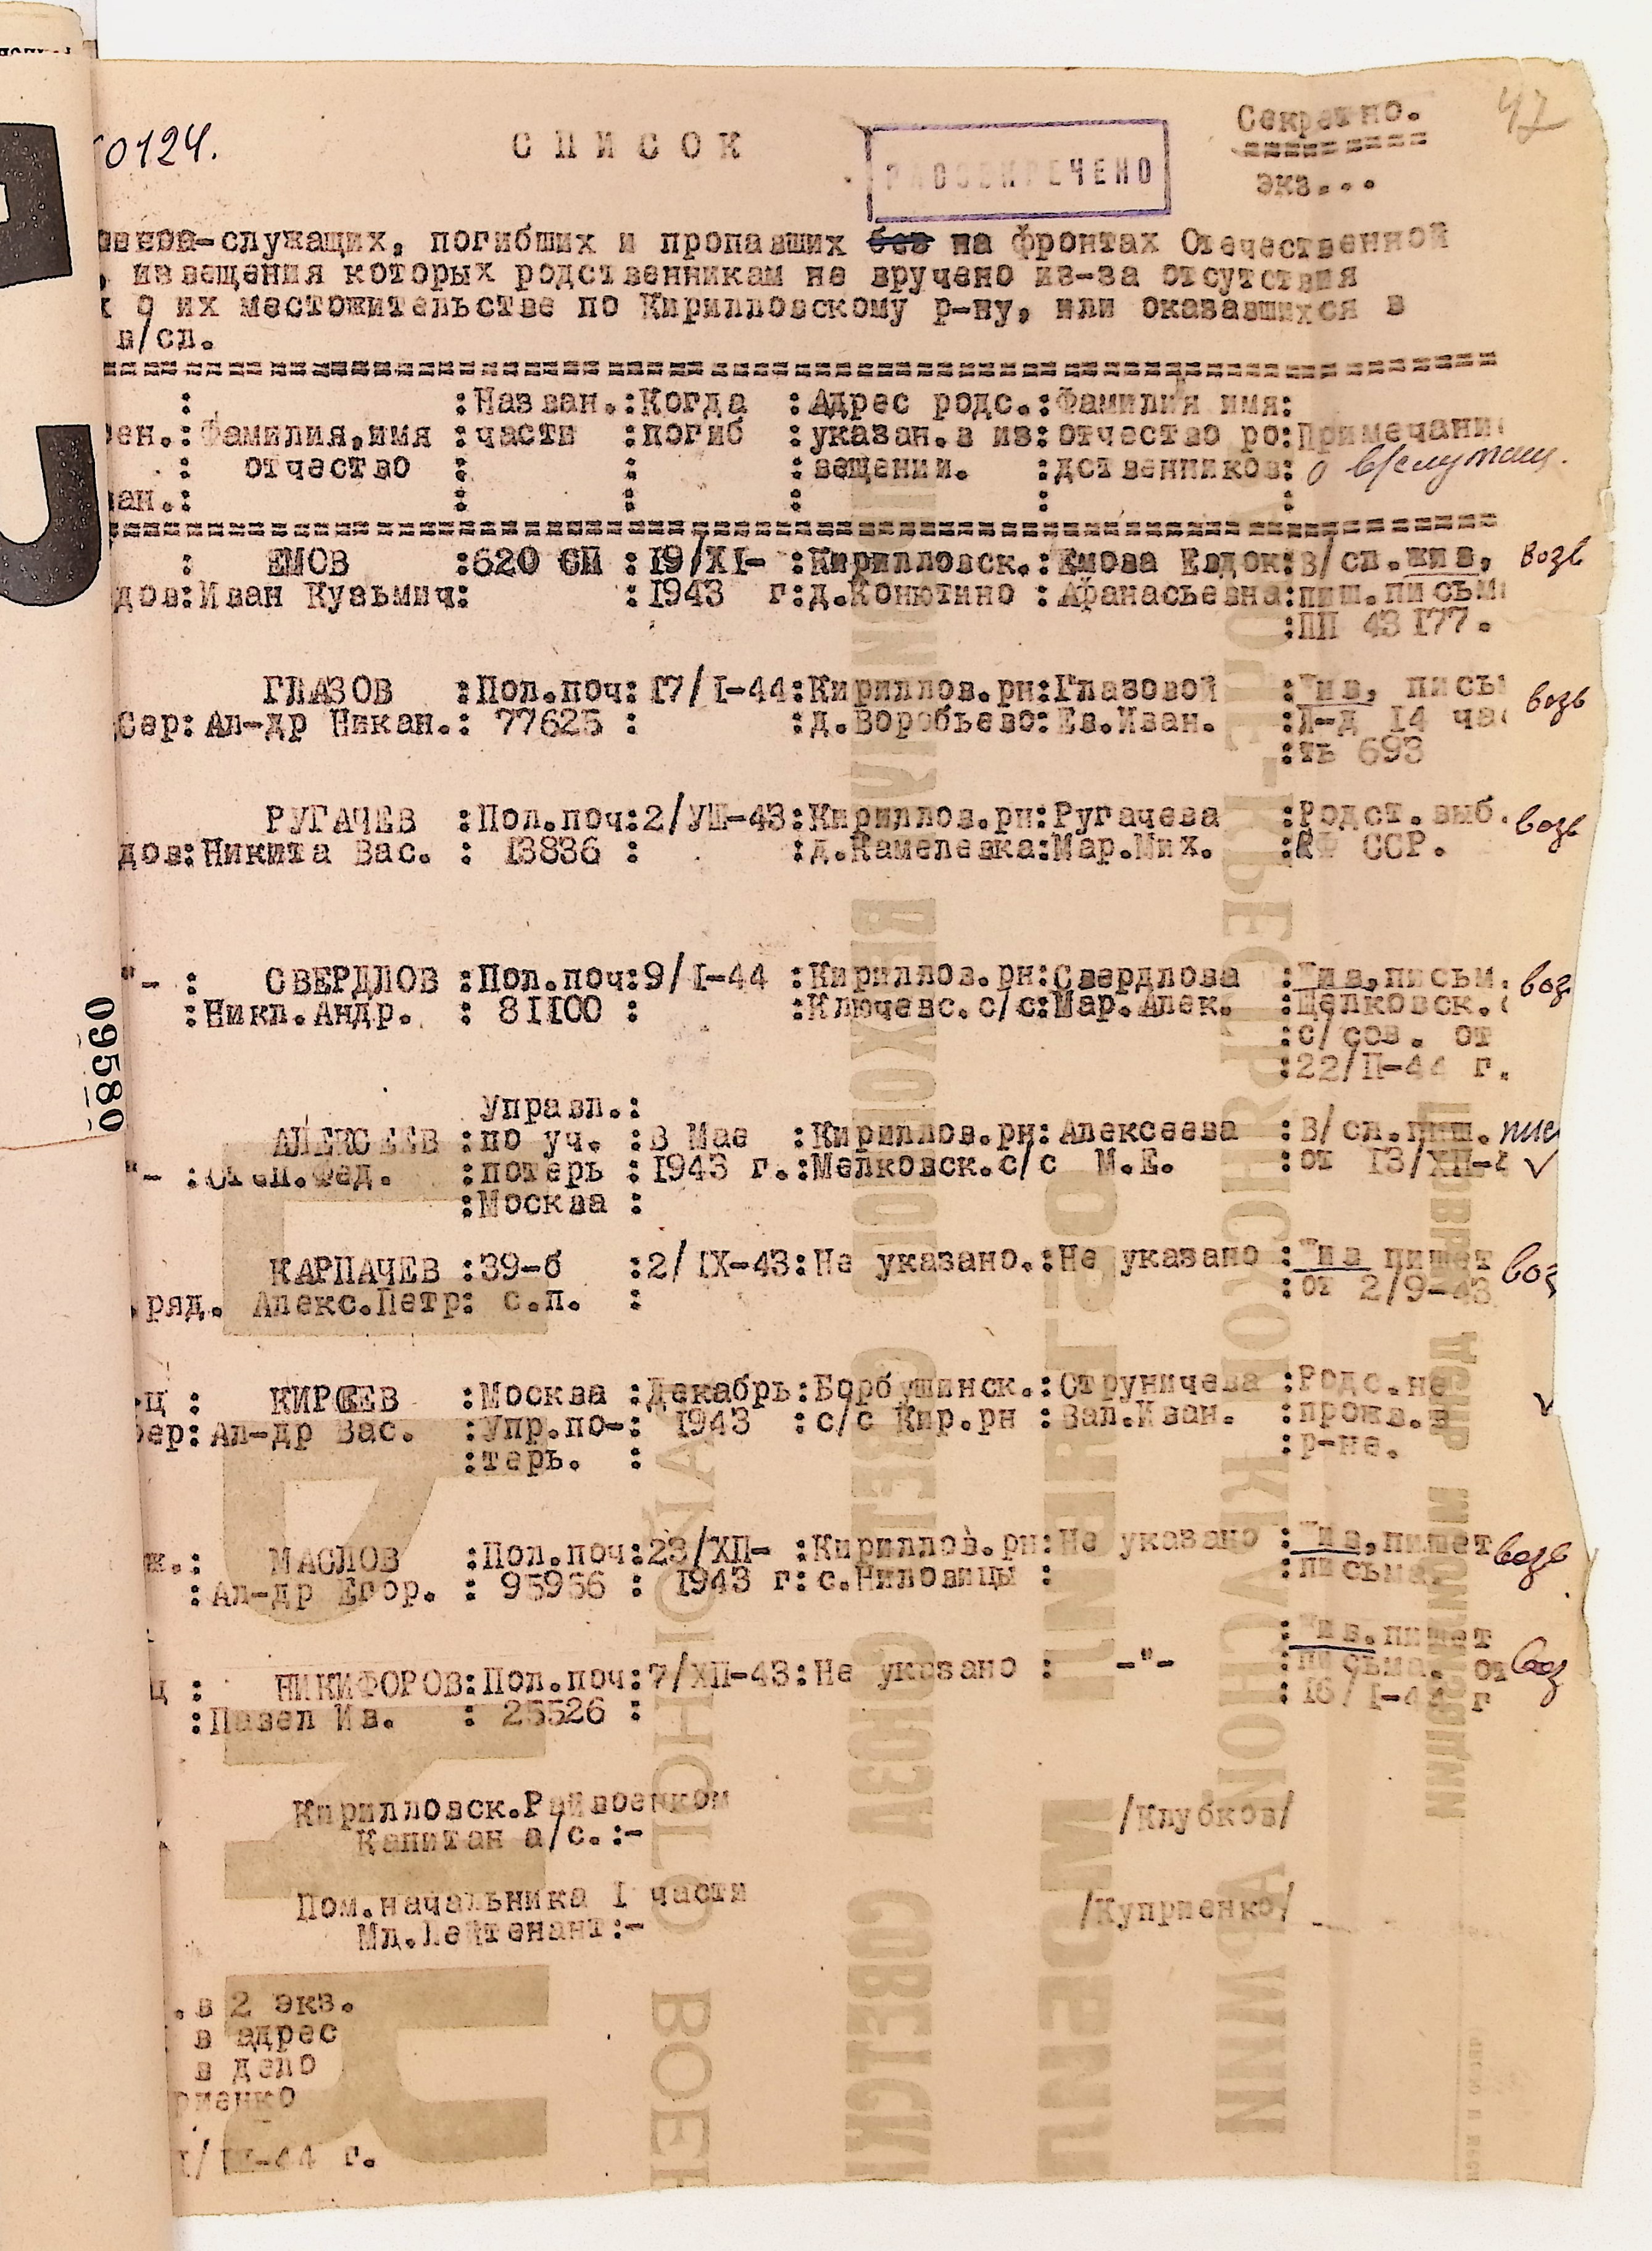 47
Секретно.
0124.
СПИСОК
РАССЕКРЕЧЕНО
экз...
-служащих, погибших и пропавших без на фронтах Отечественной
, извещения которых родственникам не вручено из-за отсутствия
о их местожительстве по Кирилловскому р-ну, или оказавшихся в
в/сл.
: :Назван.:Когда :Адрес родс.:Фамилия имя:
ен.:Фамилия,имя :части :погиб :указан.в из:отчество ро:Примечани
: отчество : : :вещении. :дственников: о в/служащ.
ан.: : : : : :
: ЕМОВ :620 СП :19/XI- :Кирилловск.:Емова Евдок:В/сл.жив, возв
дов:Иван Кузьмич: :1943 г:д.Конютино :Афанасьевна:пиш.письм
:ПП 43177.
ГЛАЗОВ :Пол.поч:17/I-44:Кириллов.рн:Глазовой :Жив, письм возв
Сер:Ал-др Никан.: 77625 : :д.Воробьево:Ев.Иван. :Л-д 14 час
:ть 693
РУГАЧЕВ :Пол.поч:2/УШ-43:Кириллов.рн:Ругачева :Родст.выб. возв
дов:Никита Вас. : 13836 : :д.Камелевка:Мар.Мих. : ССР.
"- : СВЕРДЛОВ :Пол.поч:9/I-44 :Кириллов.рн:Свердлова :Жив,письм. воз
:Никл.Андр. : 81100 : :Ключевс.с/с:Мар.Алек. :Щелковск.
:с/сов. от
:22/П-44 г.
Управл.:
АЛЕКСЕЕВ :по уч. :В Мае :Кириллов.рн:Алексеева :В/сл.пиш. пис
"- :Степ.Фед. :потерь :1943 г.:Мелковск.с/с М.Е. :от 13/ХП-4 ✓
:Москва :
КАРПАЧЕВ :39-б :2/IX-43:Не указано.:Не указано :Жив пишет воз
ряд. Алекс.Петр: с.п. : :от 2/9-43
ц : КИРЕЕВ :Москва :Декабрь:Борбушинск.:Струничева :Родс.не ✓
ер:Ал-др Вас. :Упр.по-: 1943 :с/с Кир.рн :Вал.Иван. :прожв.в
:терь. : :р-не.
ж.: МАСЛОВ :Пол.поч:23/ХП- :Кириллов.рн:Не указано :Жив,пишет возв
:Ал-др Егор. : 95956 : 1943 г:с.Ниловицы : :письма.
:Жив.пишет
ц : НИКИФОРОВ:Пол.поч:7/ХП-43:Не указано : -"- :письма. от воз
:Павел Ив. : 25526 : :16/I-44 г
Кирилловск.Райвоенком
Капитан а/с.:- /Клубков/
Пом.начальника I части
Мл.Лейтенант:- /Куприенко/
.в 2 экз.
в адрес
в дело
риенко
I/Ш-44 г.
09580